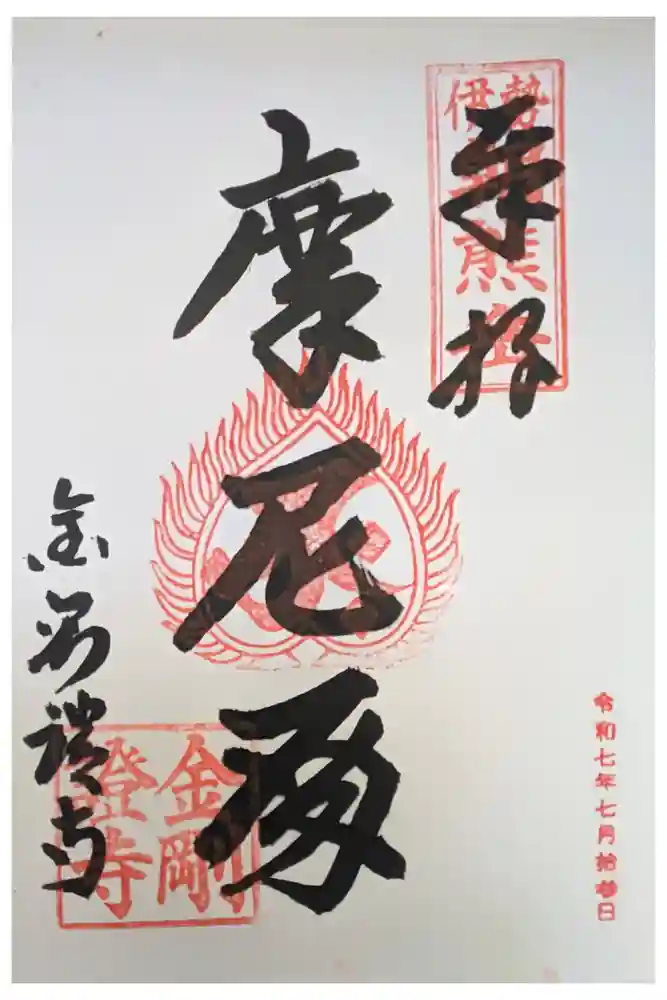 奉拝
伊勢朝熊岳
令和七年七月拾参日
摩尼殿
金剛證寺
金剛
證寺